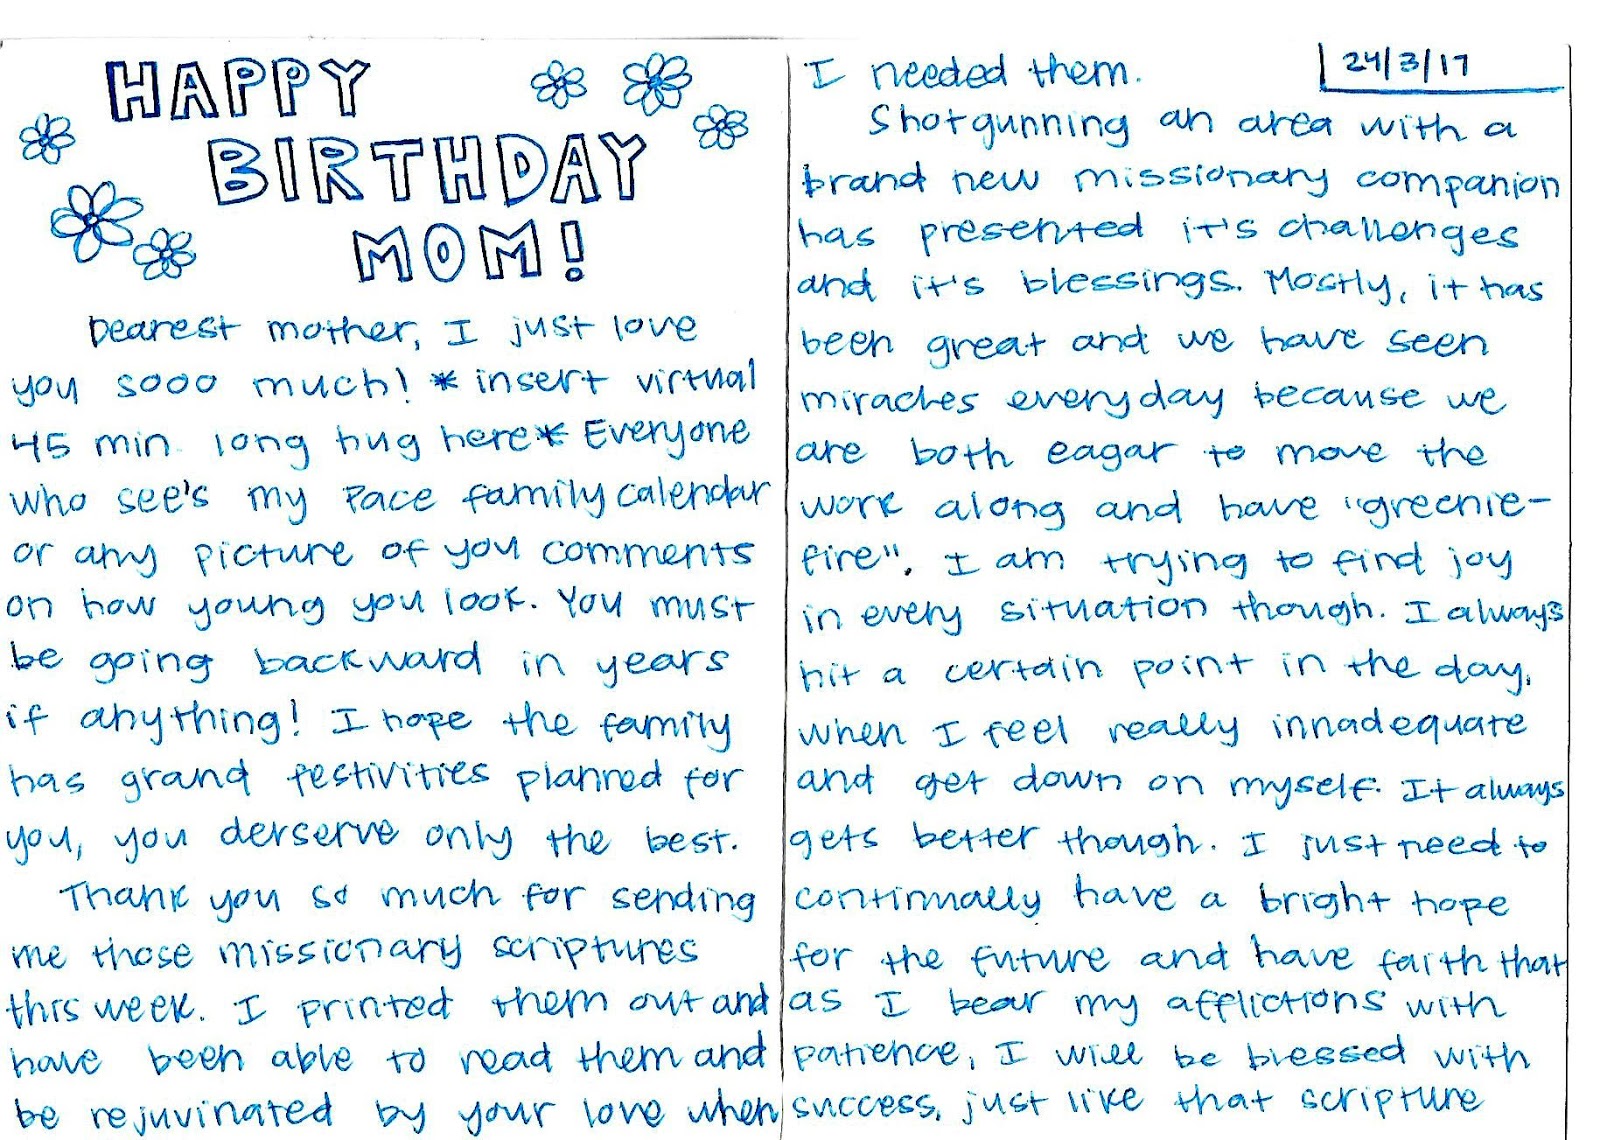 HAPPY
BIRTHDAY
MOM!
Dearest mother, I just love
you sooo much! *insert virtual
45 min. long hug here* Everyone
who see's my Pace family calendar
or any picture of you comments
on how young you look. You must
be going backward in years
if anything! I hope the family
has grand festivities planned for
you, you derserve only the best.
Thank you so much for sending
me those missionary scriptures
this week. I printed them out and
have been able to read them and
be rejuvinated by your love when
24/3/17
I needed them.
Shotgunning an area with a
brand new missionary companion
has presented it's challenges
and it's blessings. Mostly, it has
been great and we have seen
miracles everyday because we
are both eagar to move the
work along and have "greenie-
fire". I am trying to find joy
in every situation though. I always
hit a certain point in the day,
when I feel really innadequate
and get down on myself. It always
gets better though. I just need to
continually have a bright hope
for the future and have faith that
as I bear my afflictions with
patience, I will be blessed with
success, just like that scripture